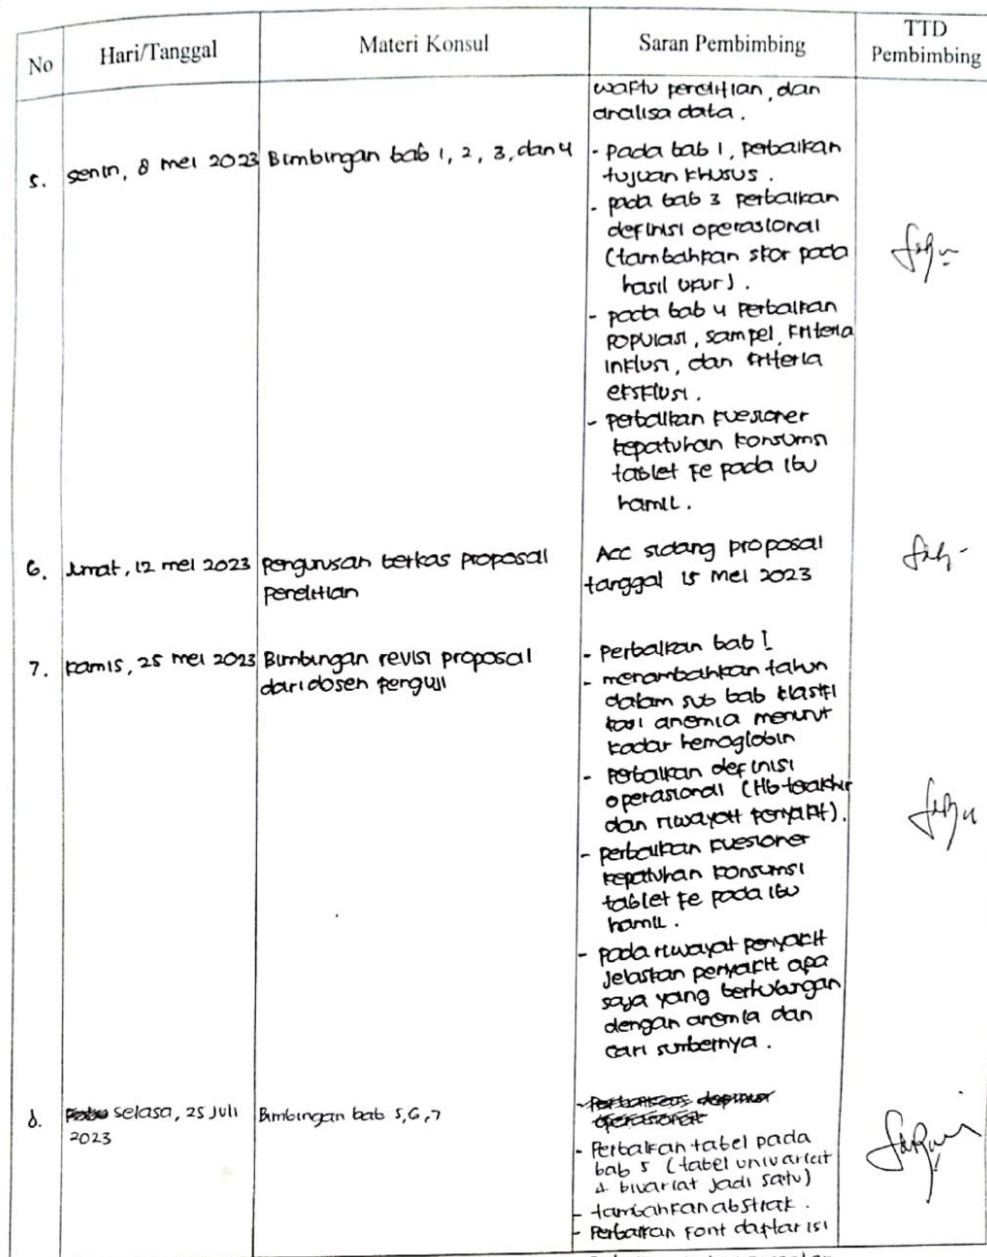 No
Hari/Tanggal
Materi Konsul
Saran Pembimbing
TTD
Pembimbing
waktu penelitian, dan
analisa data.
5.
senin, 8 mei 2023
Bimbingan bab 1, 2, 3, dan 4
- pada bab 1, perbaikan
tujuan khusus.
- pada bab 3 perbaikan
definisi operasional
(tambahkan skor pada
hasil ukur).
- pada bab 4 perbaikan
populasi, sampel, kriteria
inklusi, dan kriteria
eksklusi.
- perbaikan kuesioner
kepatuhan konsumsi
tablet Fe pada ibu
hamil.
6.
Jumat, 12 mei 2023
pengurusan berkas proposal
penelitian
Acc sidang proposal
tanggal 15 Mei 2023
7.
kamis, 25 mei 2023
Bimbingan revisi proposal
dari dosen penguji
- perbaikan bab 1
- menambahkan tahun
dalam sub bab klasifi
kasi anemia menurut
kadar hemoglobin
- perbaikan definisi
operasional (Hb terakhir
dan riwayat penyakit).
- perbaikan kuesioner
kepatuhan konsumsi
tablet Fe pada ibu
hamil.
- pada riwayat penyakit
jelaskan penyakit apa
saja yang berhubungan
dengan anemia dan
cari sumbernya.
8.
selasa, 25 Juli
2023
Bimbingan bab 5, 6, 7
- Perbaikan tabel pada
bab 5 (tabel univariat
& bivariat jadi satu)
- tambahkan abstrak.
- Perbaikan Font daftar isi